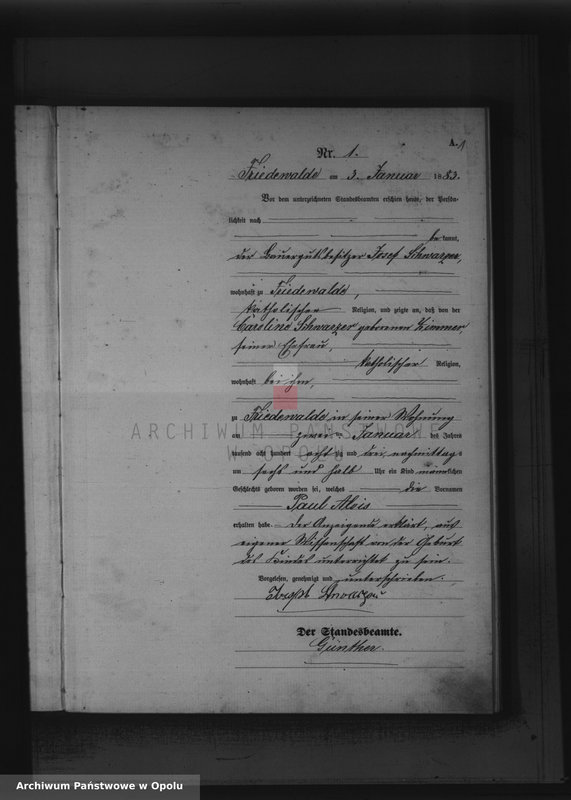 A. 1
Nr. 1.
Friedewalde am 3. Januar 1883.
Vor dem unterzeichneten Standesbeamten erschien heute, der Persön-
lichkeit nach
be kannt,
der Bauergutsbesitzer Josef Schwarzer,
wohnhaft zu Friedewalde,
katholischer Religion, und zeigte an, daß von der
Caroline Schwarzer geborenen Zimmer
seiner Ehefrau,
katholischer Religion,
wohnhaft bei ihm,
zu Friedewalde in seiner Wohnung
ARCHIWUM PAŃSTWOWE
W OPOLU
am zweiten Januar des Jahres
tausend acht hundert acht zig und drei, nachmittags
um sechs und halb Uhr ein Kind männlichen
Geschlechts geboren worden sei, welches die Vornamen
Paul Alois
erhalten habe. Der Anzeigende erklärt, aus
eigener Wissenschaft von der Geburt
des Kindes unterrichtet zu sein.
Vorgelesen, genehmigt und unterschrieben.
Der Standesbeamte.
Günther.
Archiwum Państwowe w Opolu